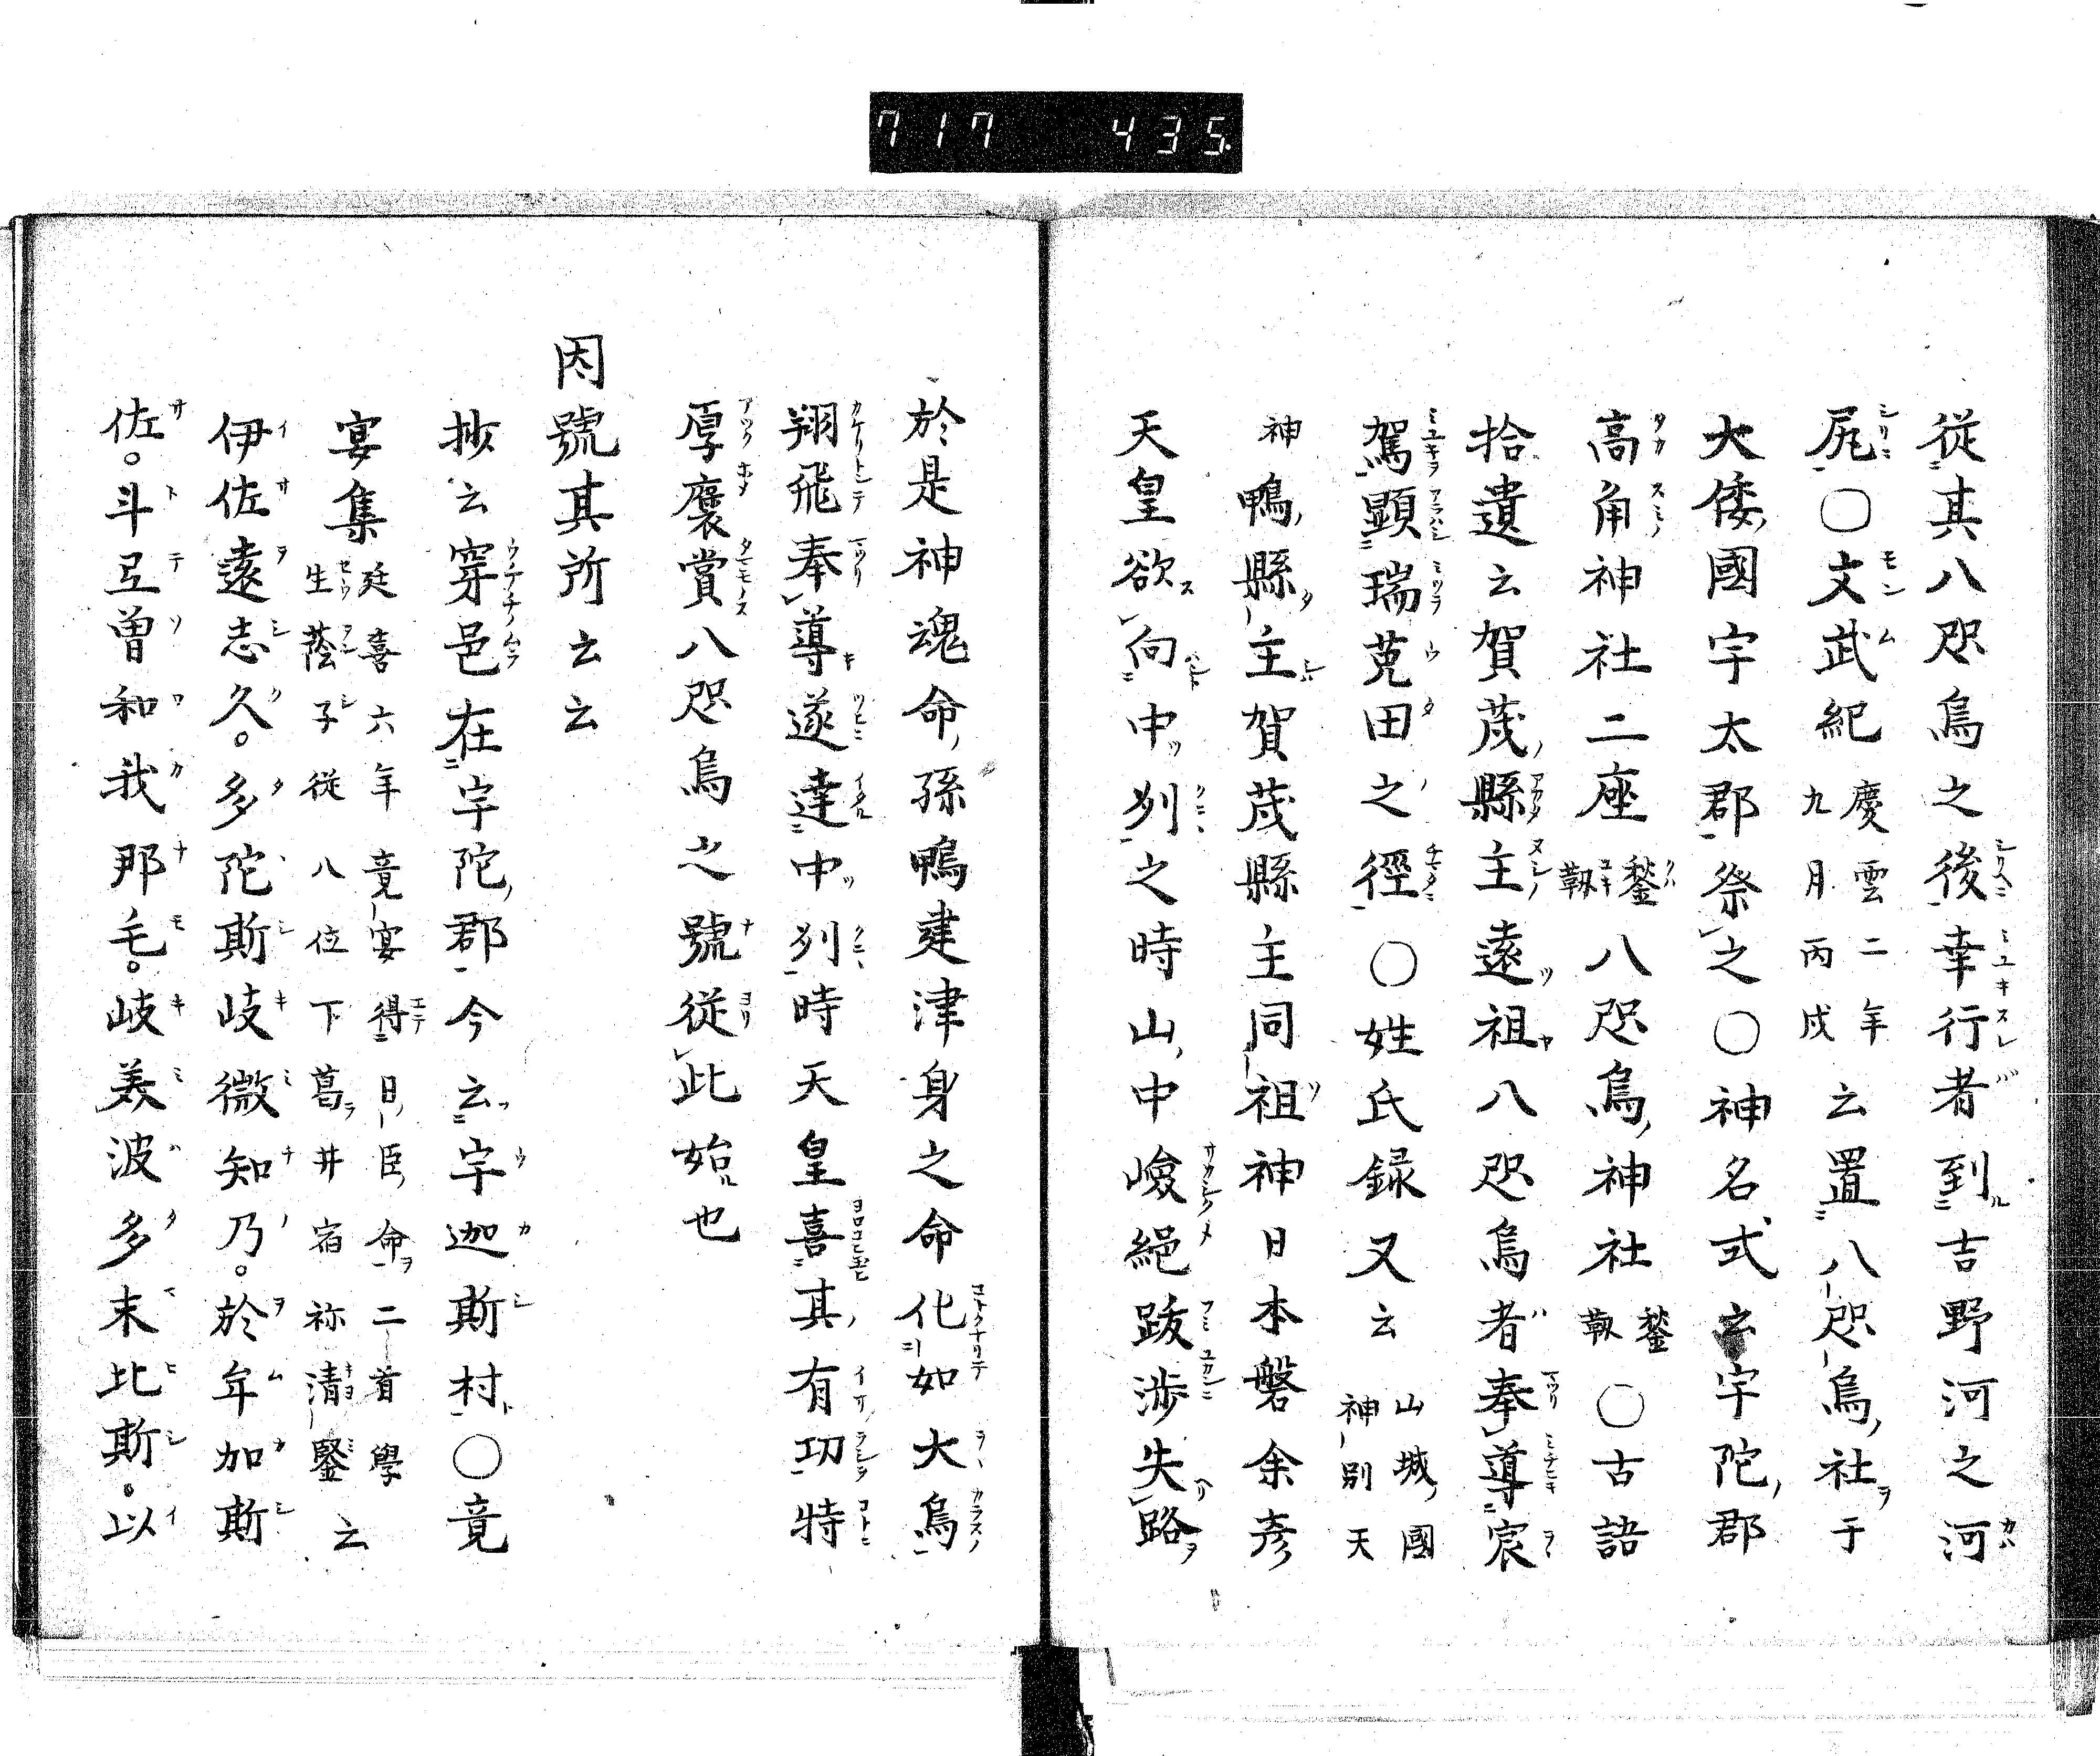 717 435
從其八咫烏之後幸行者到吉野河之河
尻〇文武紀慶雲二年九月丙戌云置八咫烏社于
大倭國宇太郡祭之〇神名式云宇陀郡
高角神社二座鍫靱八咫烏神社鍫靱〇古語
拾遺云賀茂縣主遠祖八咫烏者奉導宸
駕顯瑞菟田之徑〇姓氏録又云山城國神別天
神鴨縣主賀茂縣主同祖神日本磐余彦
天皇欲向中列之時山中嶮絕跋渉失路
於是神魂命孫鴨建津身之命化如大烏
翔飛奉導遂達中列時天皇喜其有功特
厚褒賞八咫烏之號從此始也
因號其所云云
抜云穿邑在宇陀郡今云宇迦斯村〇竟
宴集延喜六年竟宴得日臣命二首學生蔭子從八位下葛井宿祢清鑒云
伊佐遠志久。多陀斯岐微知乃。於年加斯
佐。斗弖曽和我那毛。岐美波多末比斯。以